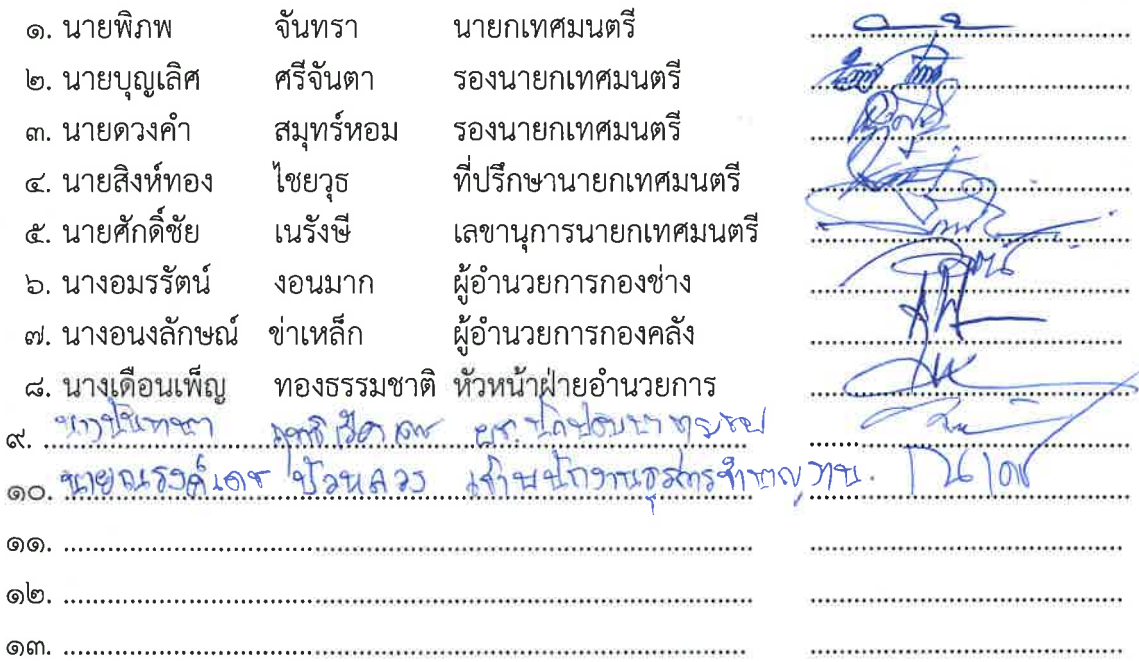 ๑. นายพิภพ จันทรา นายกเทศมนตรี
๒. นายบุญเลิศ ศรีจันตา รองนายกเทศมนตรี
๓. นายดวงคำ สมุทร์หอม รองนายกเทศมนตรี
๔. นายสิงห์ทอง ไชยวุธ ที่ปรึกษานายกเทศมนตรี
๕. นายศักดิ์ชัย เนรังษี เลขานุการนายกเทศมนตรี
๖. นางอมรรัตน์ งอนมาก ผู้อำนวยการกองช่าง
๗. นางอนงลักษณ์ ข่าเหล็ก ผู้อำนวยการกองคลัง
๘. นางเดือนเพ็ญ ทองธรรมชาติ หัวหน้าฝ่ายอำนวยการ
๙.
๑๐. นายณรงค์เดช บัวหลวง เจ้าพนักงานธุรการชำนาญงาน
๑๑.
๑๒.
๑๓.